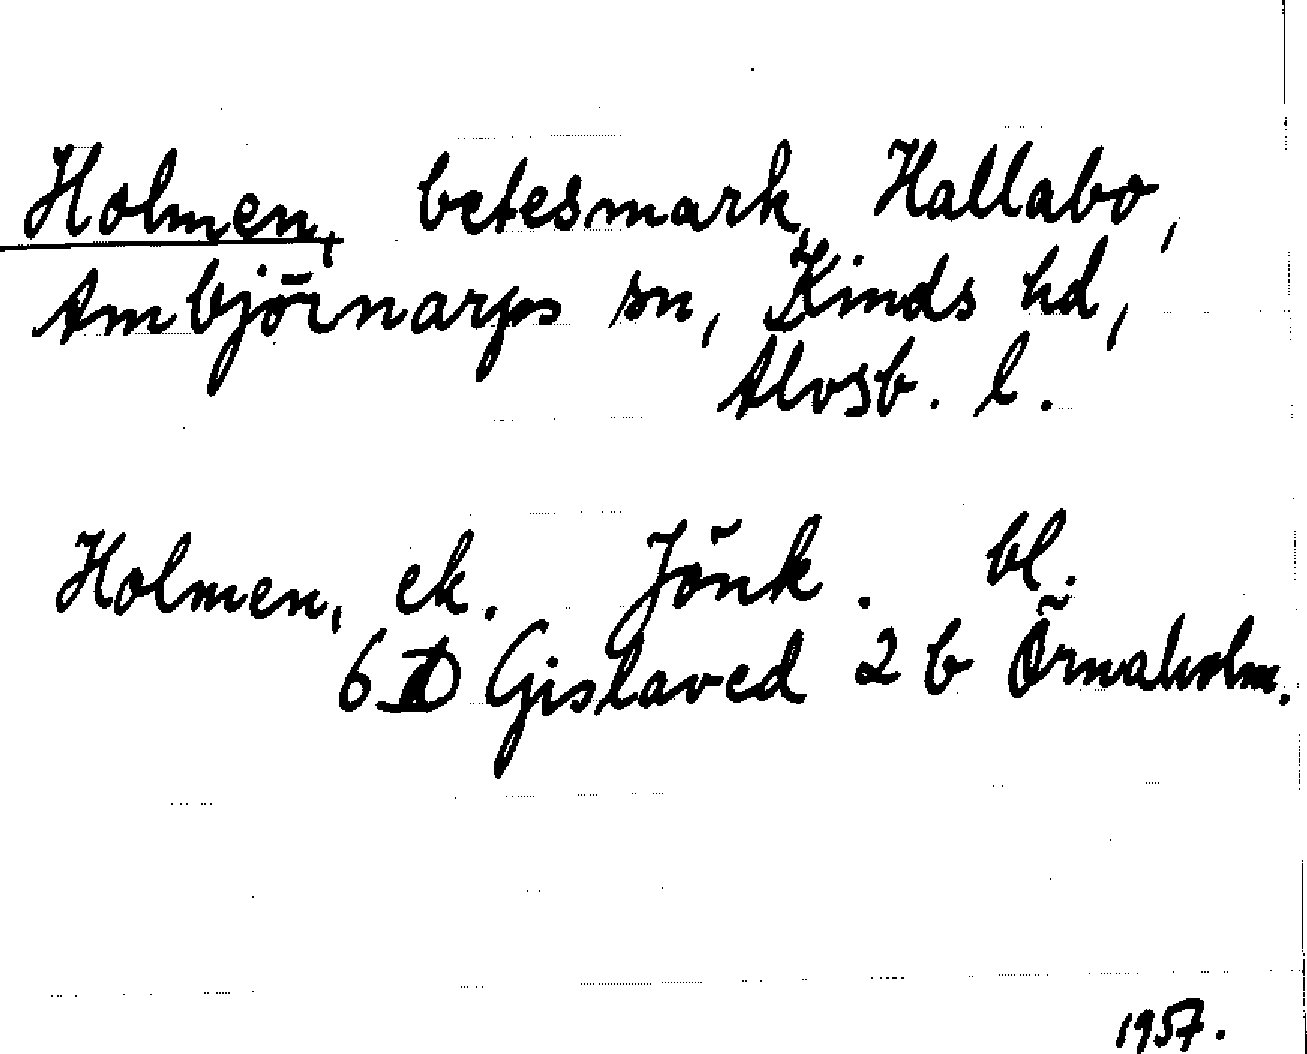 Holmen, betesmark, Hallabo,
Ambjörnarps sn, Kinds hd,
Älvsb. l.
Holmen, ek. Jönk. bl.
6 D Gislaved 2 b Örnaholm.
1957.